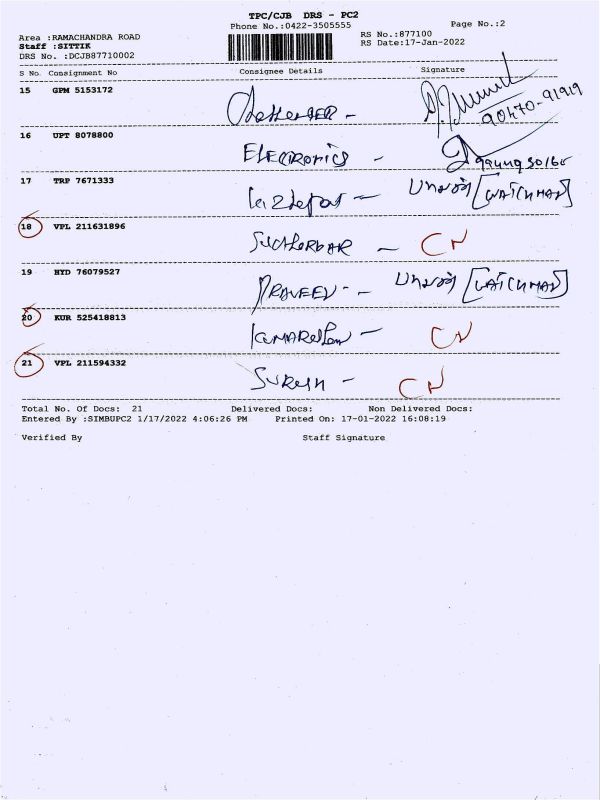 TPC/CJB DRS - PC2
Phone No.:0422-3505555
Page No.:2
Area :RAMACHANDRA ROAD
RS No.:877100
Staff :SITTIK
RS Date:17-Jan-2022
DRS No. :DCJB87710002
S No. Consignment No Consignee Details Signature
15 GPM 5153172
90470-91919
16 UPT 8078800
ELECTRONICS -
17 TRP 7671333
[WATCHMAN]
18 VPL 211631896
CN
19 HYD 76079527
PRAVEEN - [WATCHMAN]
20 KUR 525418813
CN
21 VPL 211594332
SURESH - CN
Total No. Of Docs: 21 Delivered Docs: Non Delivered Docs:
Entered By :SIMBUPC2 1/17/2022 4:06:26 PM Printed On: 17-01-2022 16:08:19
Verified By Staff Signature